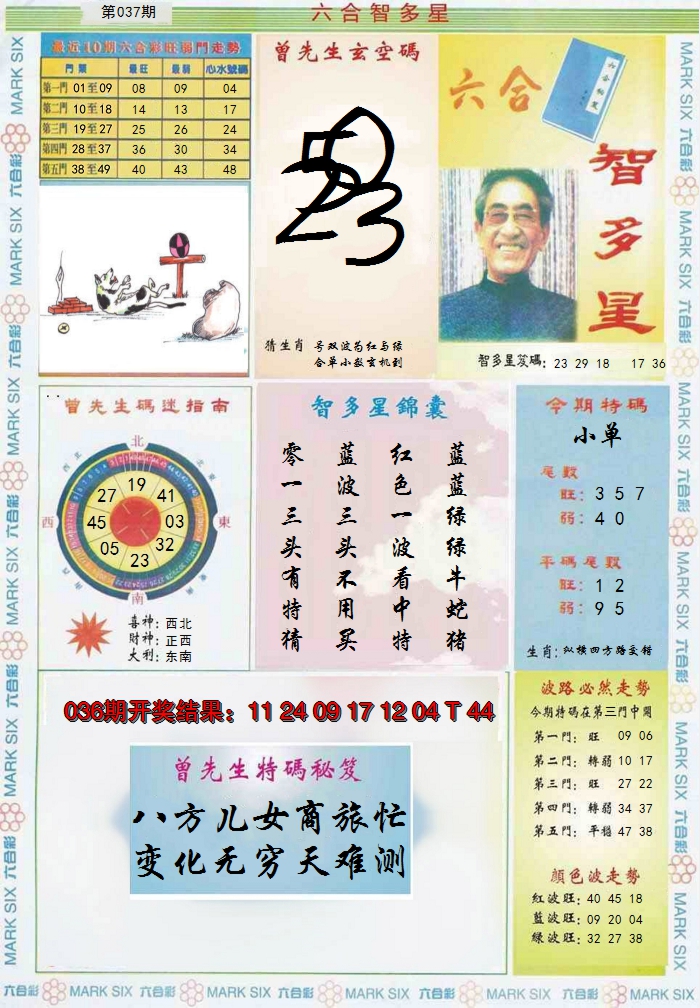 第037期
六合智多星
最近10期六合彩旺弱門走勢
門類 最旺 最弱 心水號碼
第一門 01至09 08 09 04
第二門 10至18 14 13 17
第三門 19至27 25 26 24
第四門 28至37 36 30 34
第五門 38至49 40 43 48
曾先生玄空碼
5023
猜生肖
号双波苟红与绿
合单小数玄机到
六合
智多星
智多星笈碼: 23 29 18 17 36
曾先生碼迷指南
北
西
東
南
19
41
03
32
23
05
45
27
喜神: 西北
財神: 正西
大利: 东南
智多星錦囊
零一三头有特猜
蓝波三头不用买
红色一波看中特
蓝蓝绿绿牛蛇猪
今期特碼
小单
尾數
旺: 3 5 7
弱: 4 0
平碼尾數
旺: 1 2
弱: 9 5
生肖: 纵横四方路交错
036期开奖结果: 11 24 09 17 12 04 T 44
曾先生特碼秘笈
八方儿女商旅忙
变化无穷天难测
波路必然走勢
今期特碼在第三門中開
第一門: 旺 09 06
第二門: 轉弱 10 17
第三門: 旺 27 22
第四門: 轉弱 34 37
第五門: 平穩 47 38
顏色波走勢
紅波旺: 40 45 18
藍波旺: 09 20 04
綠波旺: 32 27 38
六合彩 MARK SIX 六合彩 MARK SIX 六合彩 MARK SIX 六合彩 MARK SIX 六合彩 MARK SIX